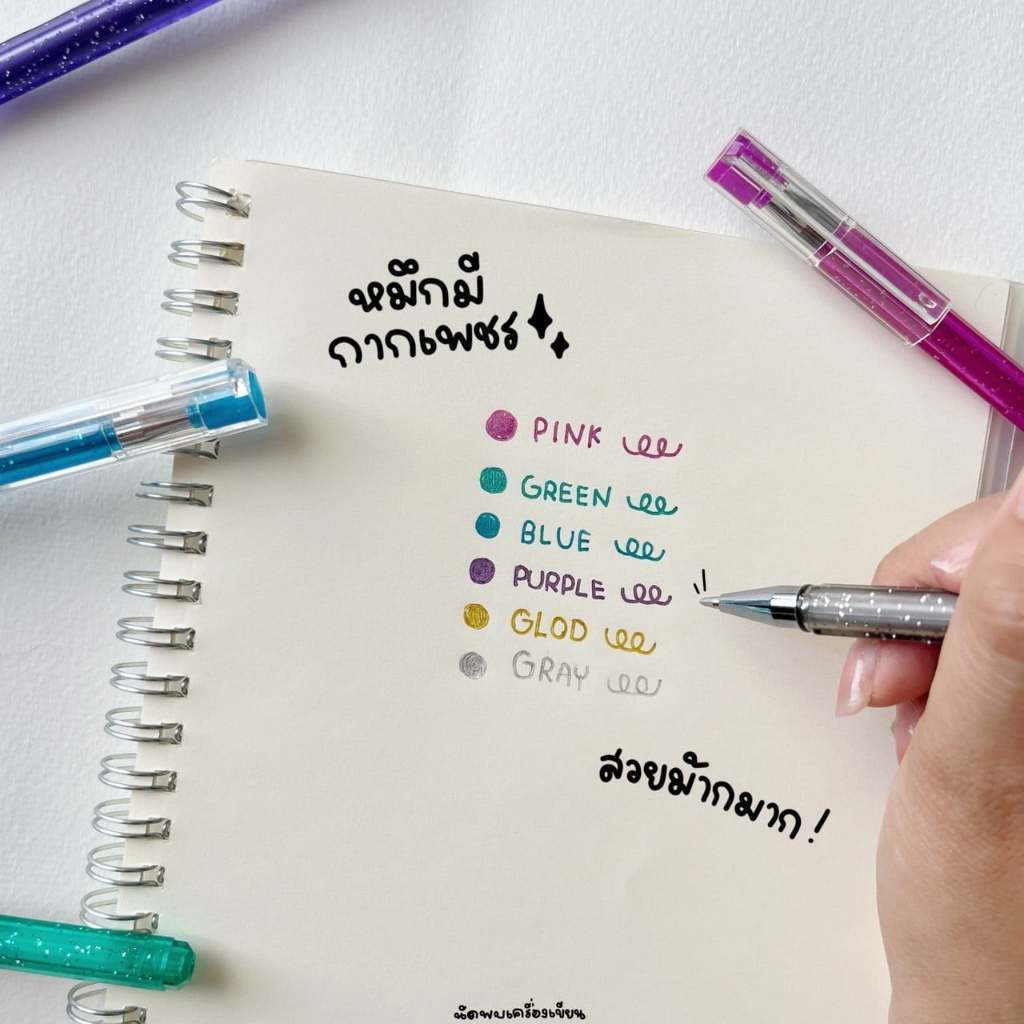 หมึกมี
กากเพชร
PINK
GREEN
BLUE
PURPLE
GLOD
GRAY
สวยม้ากมาก!
นัดพบเครื่องเขียน